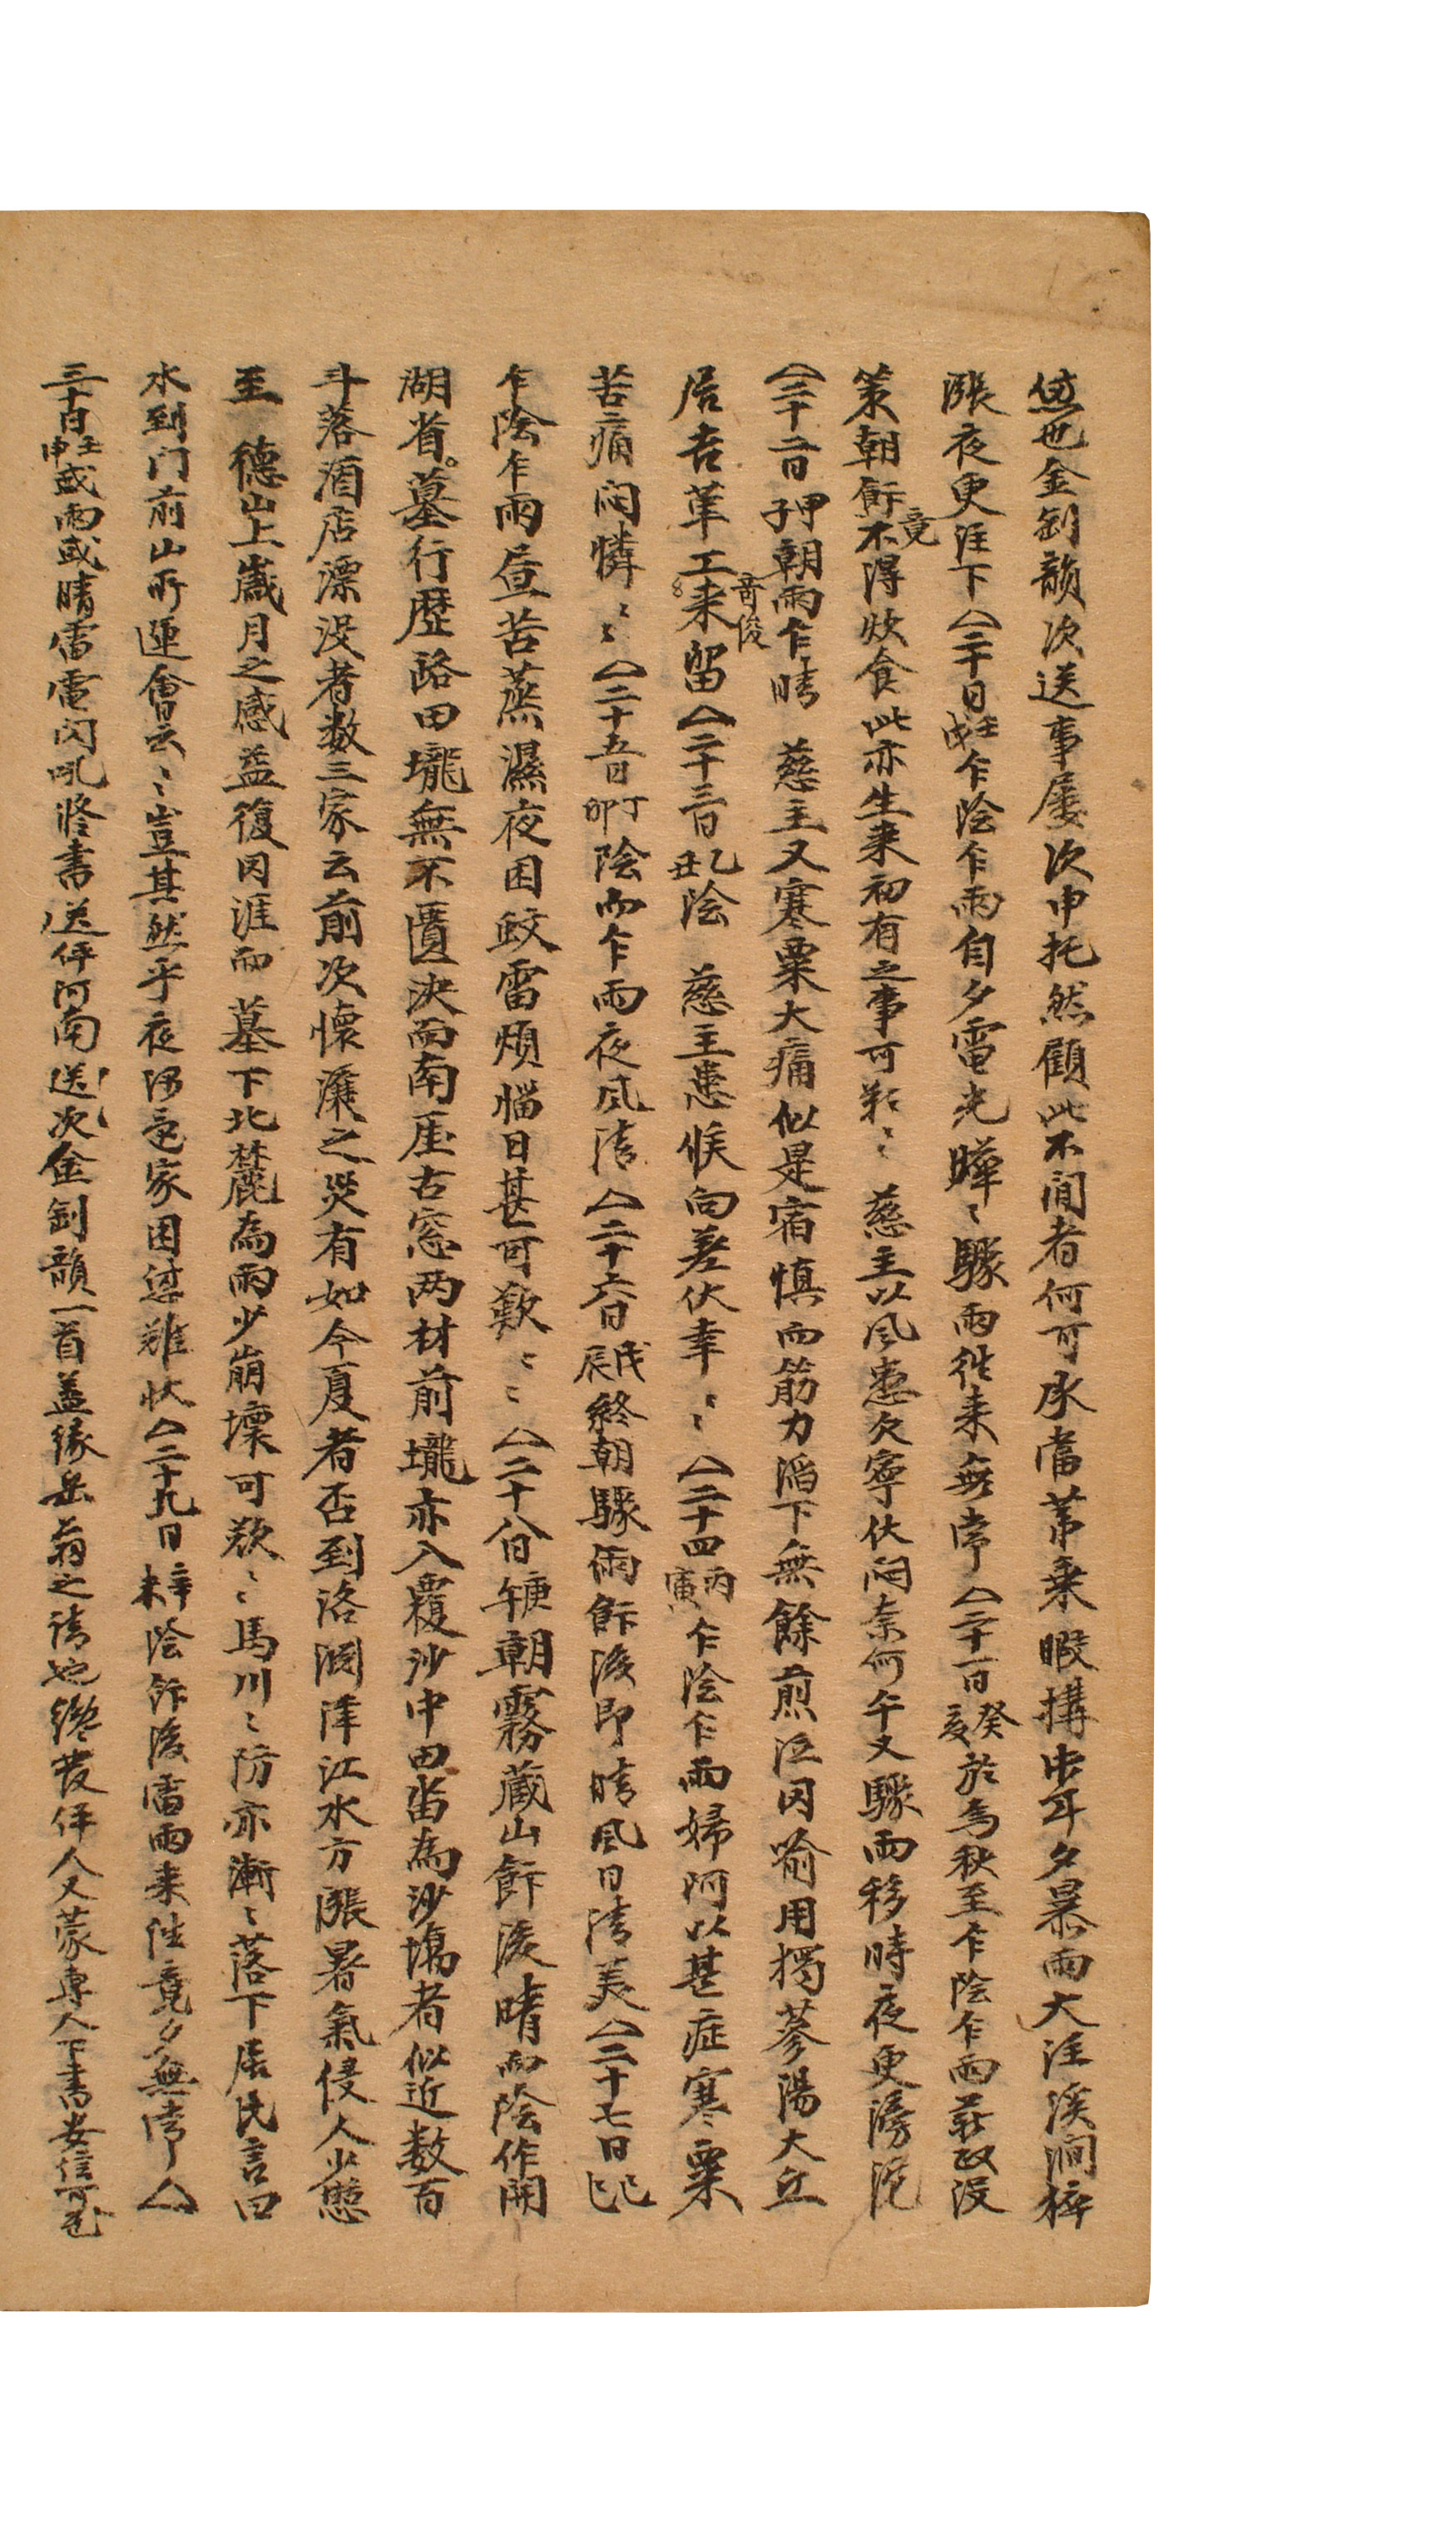 悠也金釗韻次送事屢次申托然顧此不閒者何可承當第乘暇搆出耳夕暴雨大注溪澗猝
漲夜更注下△二十日壬戌乍陰乍雨自夕電光曄〻驟雨徃来無常△二十一日癸亥於焉秋至乍陰乍雨薪政沒
策朝飰竟不淂炊食此亦生来初有之事可歎〻慈主以風患欠寧伏悶奈何午又驟雨移時夜更滂沱
△二十二日甲子朝雨乍晴 慈主又寒粟大痛似是宿愼而筋力滔下無餘煎泣罔喩用獨蔘湯大丘
居吉革工奇俊来留△二十三日乙丑陰 慈主患候向差伏幸〻△二十四丙寅乍陰乍雨婦阿以甚症寒粟
苦痛悶憐〻△二十五日丁卯陰而乍雨夜風淸△二十六日戊辰終朝驟雨飰後即晴風日淸美△二十七日己巳
乍陰乍雨昼苦蒸濕夜困蚊雷煩惱日甚可歎〻△二十八日庚午朝霧蔵山飰後晴而陰作開
湖省墓行歷路田壠無不匱決而南厓古窓两村前壠亦入覆沙中田畓為沙塲者似近数百
斗落酒店漂沒者数三家云前次懷㐮之災有如今夏者否到洛渊津江水方漲暑氣侵人少憇
至 德山上歲月之感益復罔涯而墓下北麓為雨少崩壞可歎〻馬川〻防亦漸〻落下居民言曰
水到门前山所運會云〻豈其然乎夜湯夗家困㥘難状△二十九日辛未陰飰後雷雨来徃竟夕無常△
三十日壬申或雨或晴雷電閃吼修書送伻河南送次金釗韻一首盖緣岳翁之請也纔发伻人又蒙専人下書安信可慰